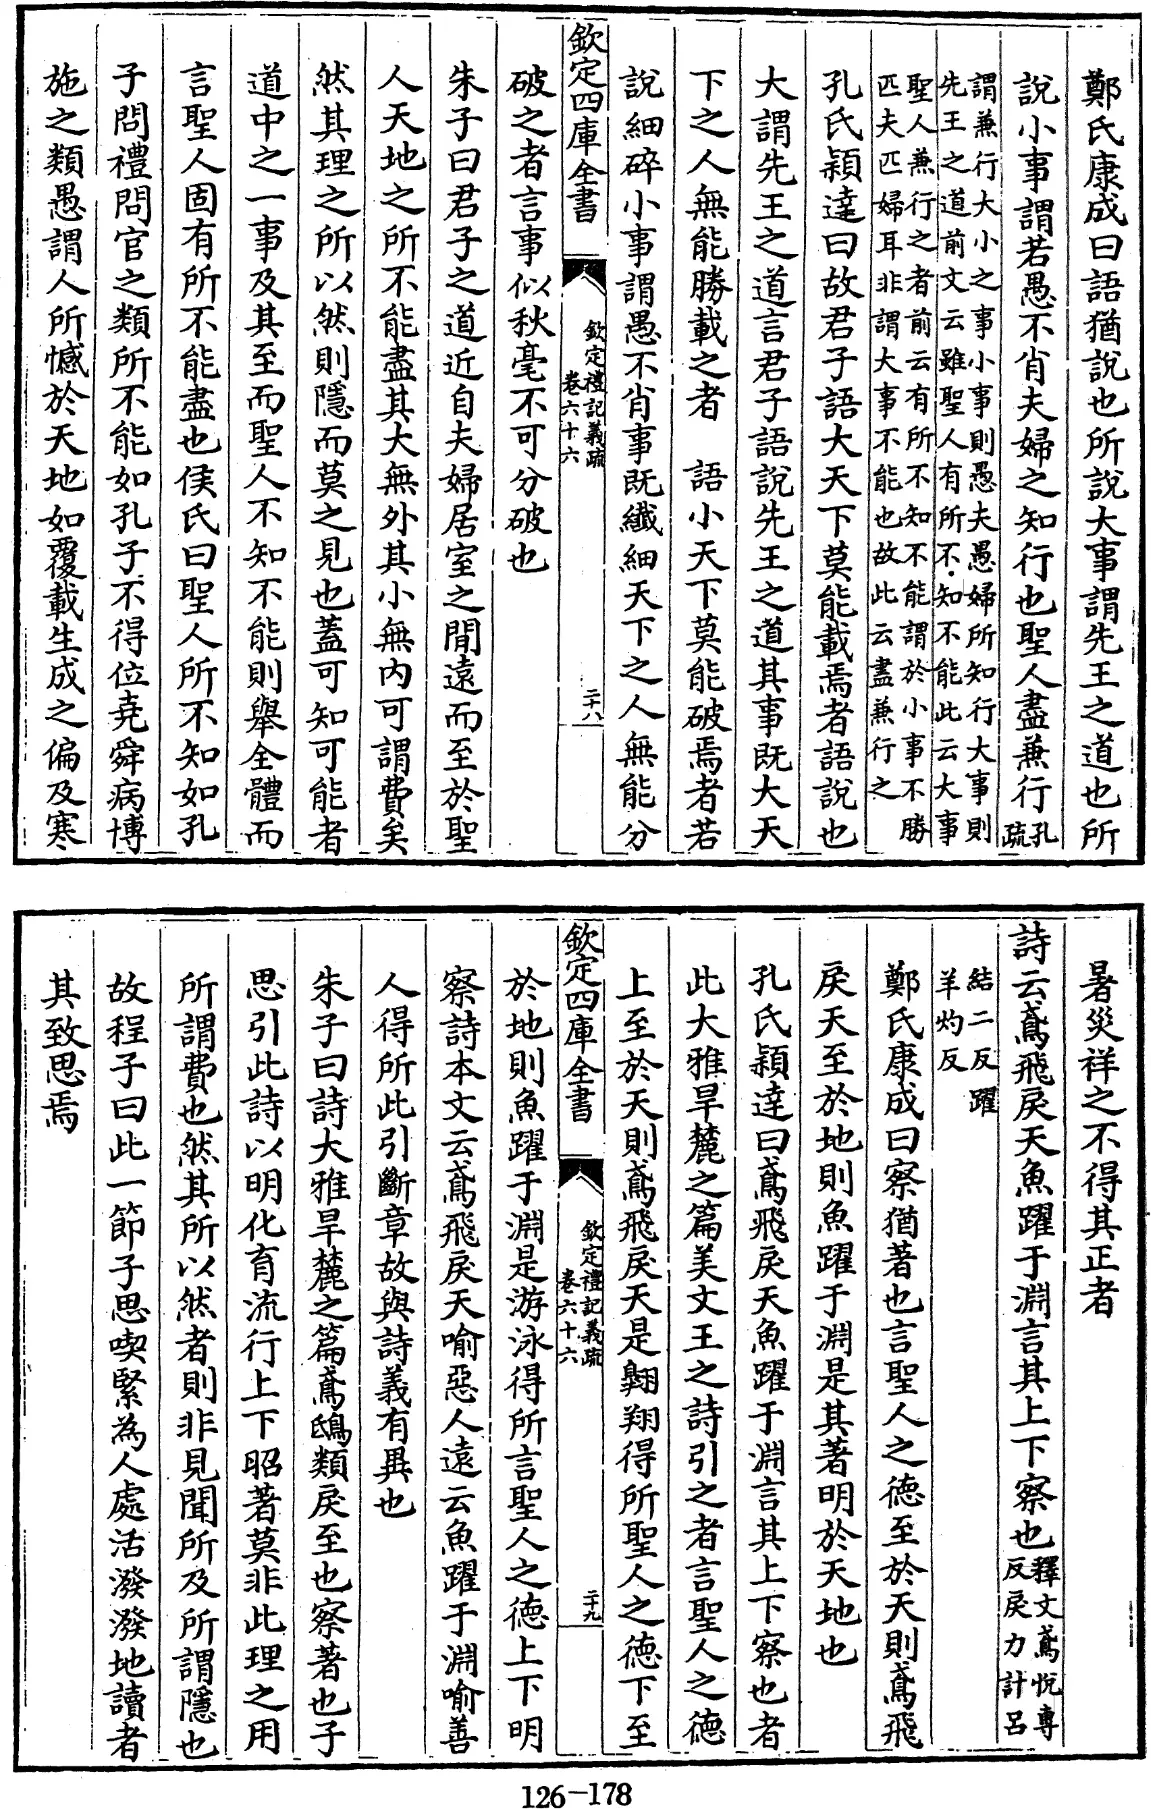 鄭氏康成曰語猶說也所說大事謂先王之道也所
說小事謂若愚不肖夫婦之知行也聖人盡兼行孔疏
謂兼行大小之事小事則愚夫愚婦所知行大事則
先王之道前文云雖聖人有所不知不能此云大事
聖人兼行之者前云有所不知不能謂於小事不勝
匹夫匹婦耳非謂大事不能也故此云盡兼行之
孔氏穎達曰故君子語大天下莫能載焉者語說也
大謂先王之道言君子語說先王之道其事既大天
下之人無能勝載之者 語小天下莫能破焉者若
說細碎小事謂愚不肖事既纖細天下之人無能分
欽定四庫全書
欽定禮記義疏
卷六十六
二十八
破之者言事似秋毫不可分破也
朱子曰君子之道近自夫婦居室之閒遠而至於聖
人天地之所不能盡其大無外其小無內可謂費矣
然其理之所以然則隱而莫之見也蓋可知可能者
道中之一事及其至而聖人不知不能則舉全體而
言聖人固有所不能盡也侯氏曰聖人所不知如孔
子問禮問官之類所不能如孔子不得位堯舜病博
施之類愚謂人所憾於天地如覆載生成之偏及寒
暑災祥之不得其正者
詩云鳶飛戾天魚躍于淵言其上下察也釋文鳶悅專
反戾力計呂
結二反躍
羊灼反
鄭氏康成曰察猶著也言聖人之德至於天則鳶飛
戾天至於地則魚躍于淵是其著明於天地也
孔氏穎達曰鳶飛戾天魚躍于淵言其上下察也者
此大雅旱麓之篇美文王之詩引之者言聖人之德
上至於天則鳶飛戾天是翱翔得所聖人之德下至
欽定四庫全書
欽定禮記義疏
卷六十六
二十九
於地則魚躍于淵是游泳得所言聖人之德上下明
察詩本文云鳶飛戾天喻惡人遠云魚躍于淵喻善
人得所此引斷章故與詩義有異也
朱子曰詩大雅旱麓之篇鳶鴟類戾至也察著也子
思引此詩以明化育流行上下昭著莫非此理之用
所謂費也然其所以然者則非見聞所及所謂隱也
故程子曰此一節子思喫緊為人處活潑潑地讀者
其致思焉
126-178